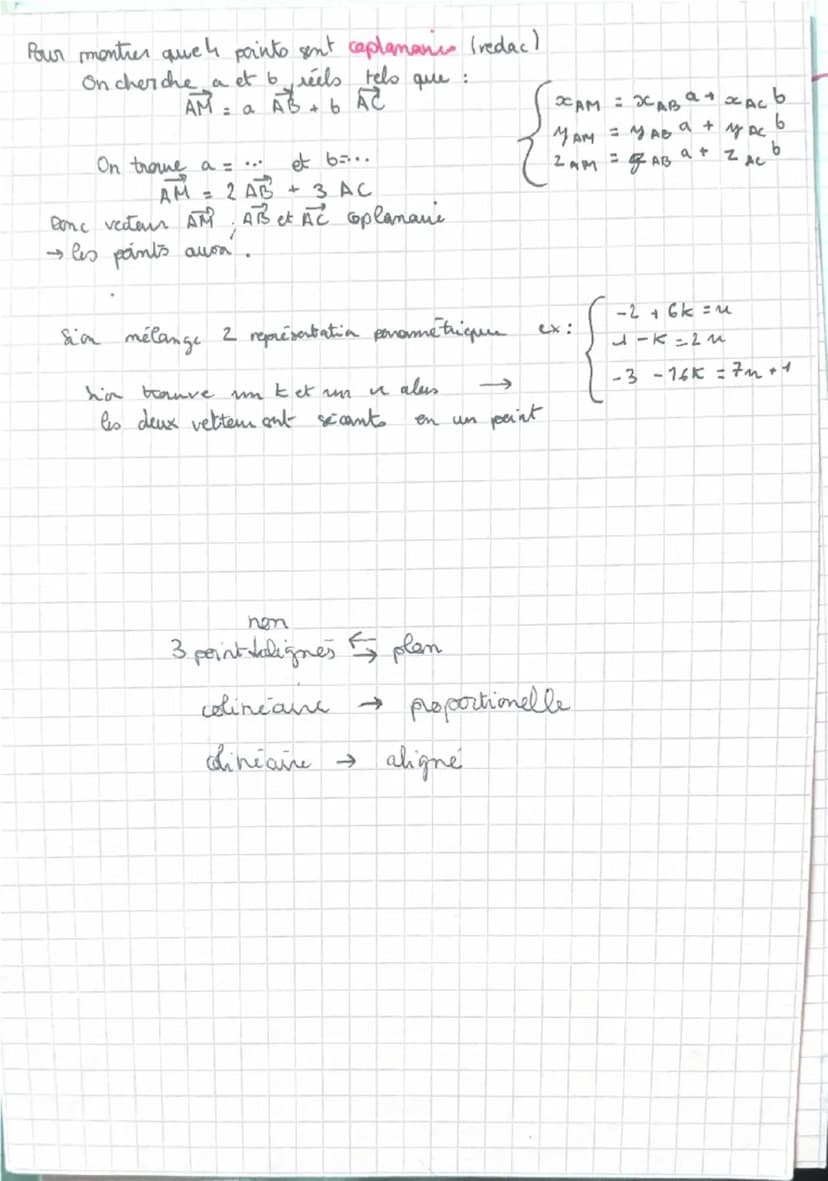 Pour montrer que 4 points sont coplanaires (redac)
On cherche a et b, réels tels que :
AM→ = a AB→ + b AC→
{ xAM = xAB a + xAC b
yAM = yAB a + yAC b
zAM = zAB a + zAC b
On trouve a = ... et b = ...
AM→ = 2 AB→ + 3 AC
Donc vecteur AM→, AB→ et AC→ coplanaire
→ les points aussi.
Si on mélange 2 représentation paramétrique ex :
{ -2 + 6k = u
1 - k = 2u
-3 - 16k = 7u + 1
Si on trouve un k et un u alors →
les deux sécants en un point
non
3 points alignés ⇆ plan
colinéaire → proportionelle
colinéaire → aligné